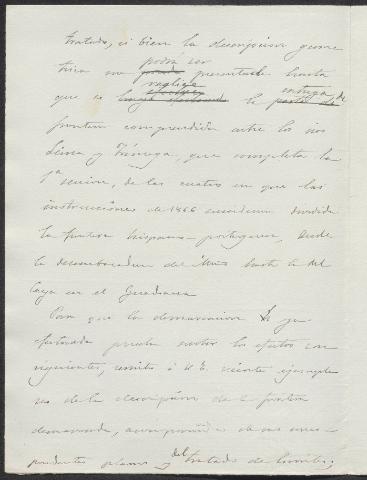 tratado, si bien la descripcion geome
trica no podrá ser presentada hasta
que se realize la entrega de
frontera comprendida entre los rios
Lima y Trávega, que completa la
1ª seccion, de las cuatro en que las
instrucciones de 1866 consideran dividida
la frontera hispano-portuguesa, desde
la desembocadura del Miño hasta la del
Caya en el Guadiana
Para que la demarcacion ya
efectuada pueda surtir los efectos con
siguientes, remito á V.E. veinte ejempla
res de la descripcion de la frontera
demarcada, acompañados de sus corres
pondientes planos y del tratado de límites,